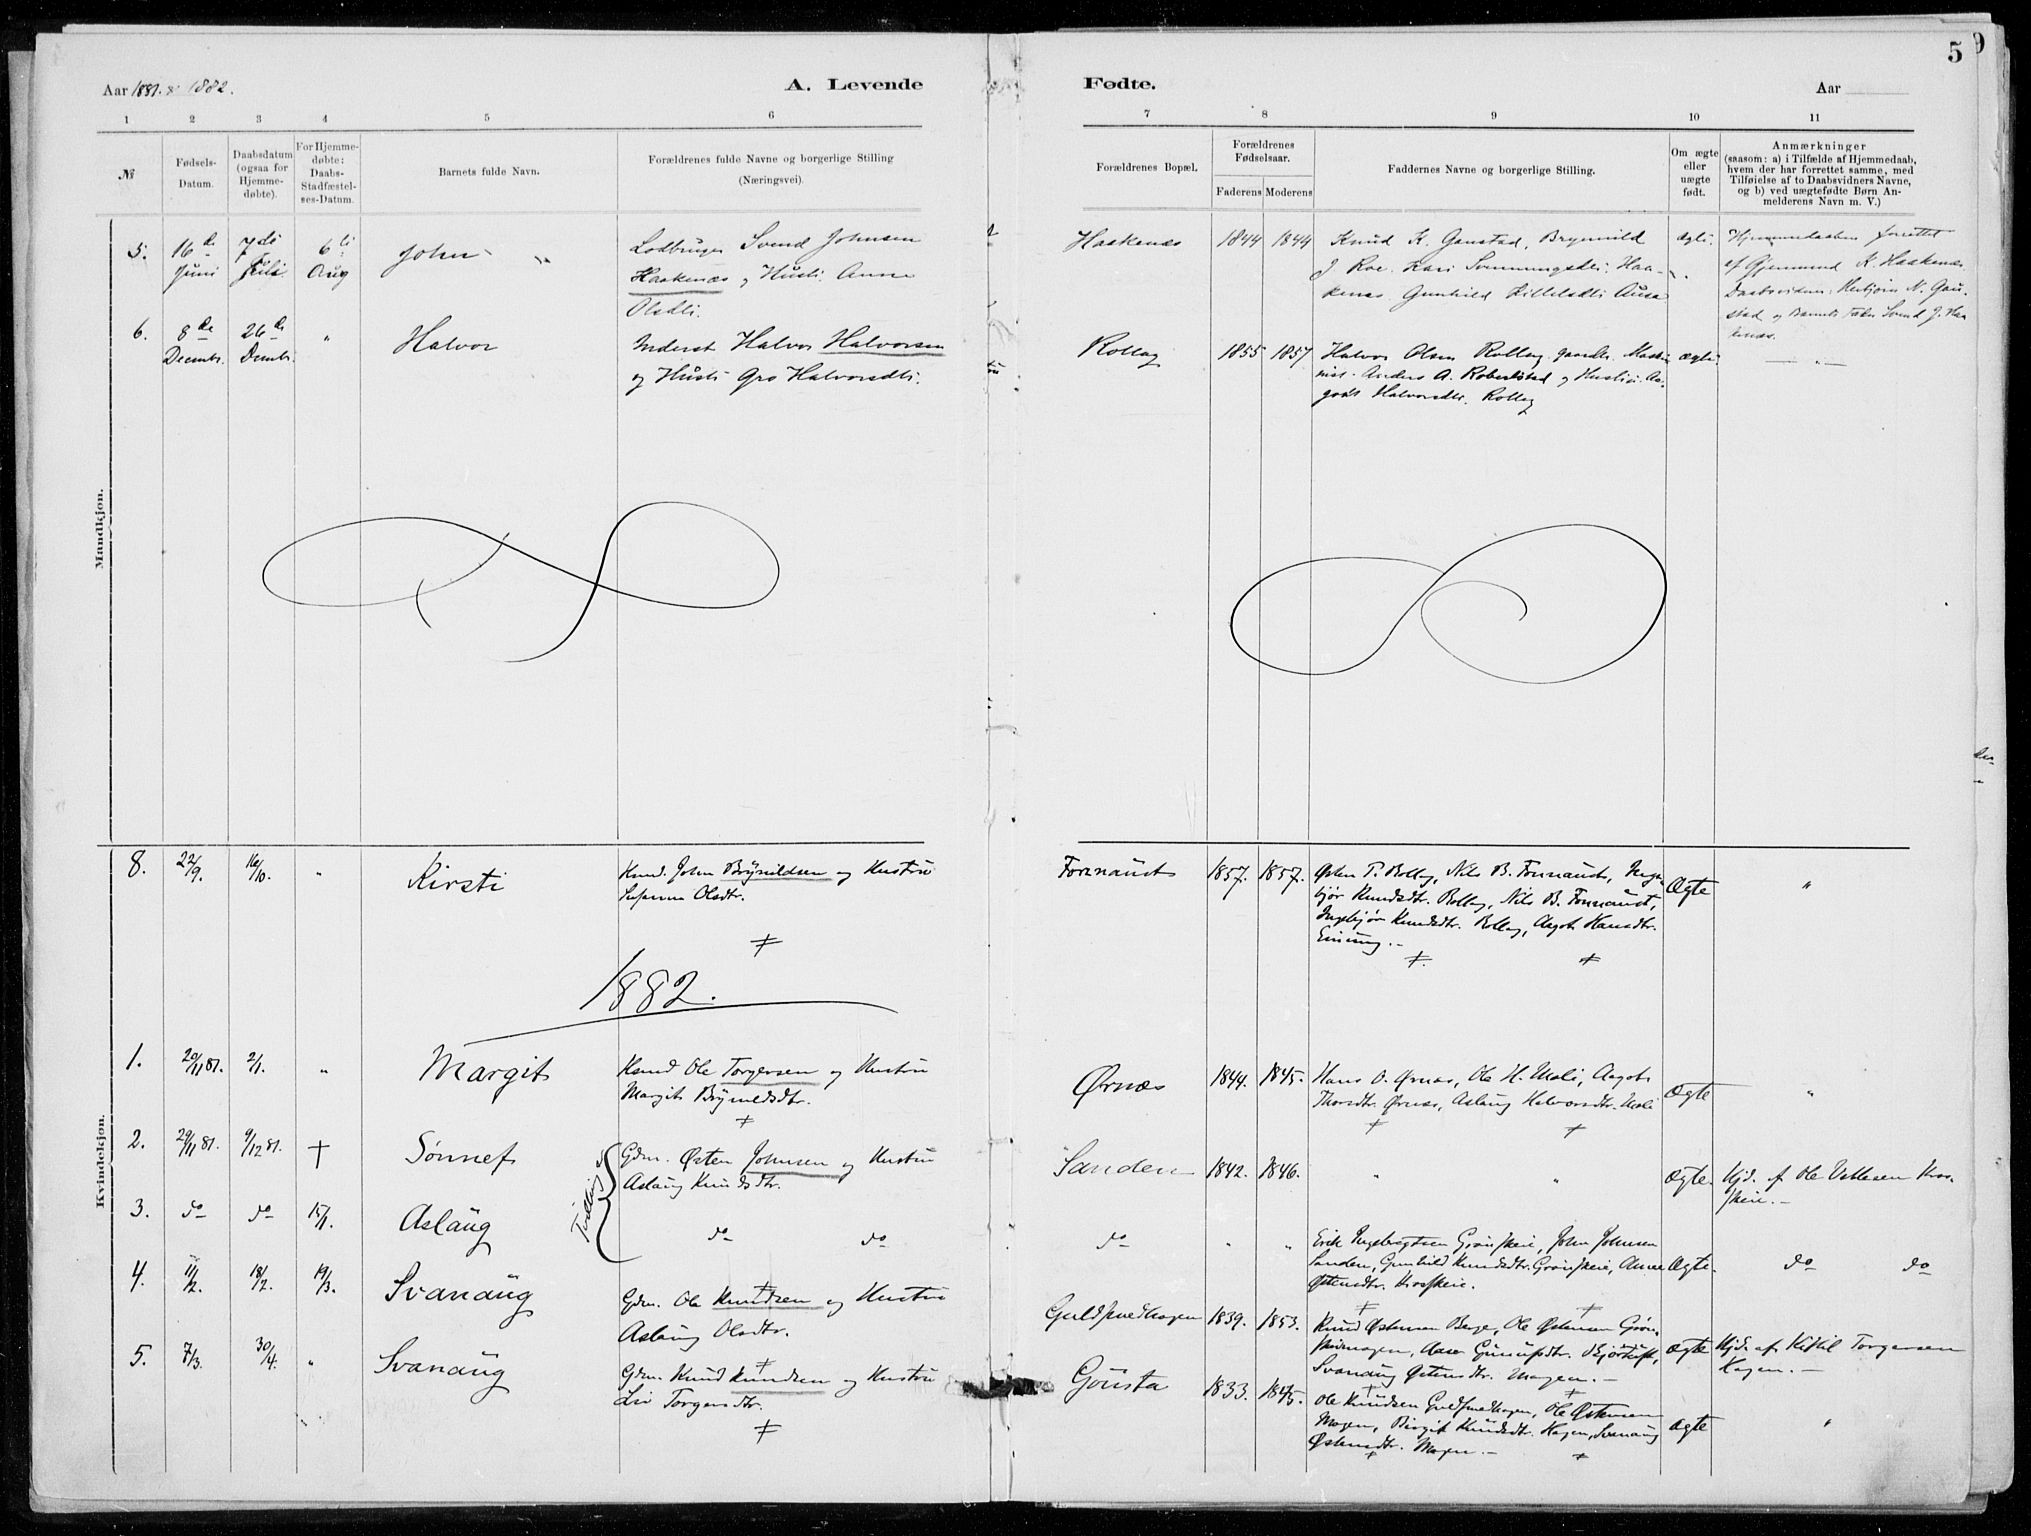 5
Aar 1881. & 1882.
A. Levende
Fødte.
Aar
1 2 3 4 5 6
7 8 9 10 11
№
Fødsels-
Datum.
Daabsdatum
(ogsaa for
Hjemme-
døbte).
For Hjemme-
døbte:
Daabs-
Stadfæstel-
ses-Datum.
Barnets fulde Navn.
Forældrenes fulde Navne og borgerlige Stilling
(Næringsvei).
Forældrenes Bopæl.
Forældrenes
Fødselsaar.
Faderens Moderens
Faddernes Navne og borgerlige Stilling.
Om ægte
eller
uægte
født.
Anmærkninger
(saasom: a) i Tilfælde af Hjemmedaab,
hvem der har forrettet samme, med
Tilføielse af to Daabsvidners Navne,
og b) ved uægtefødte Børn An-
melderens Navn m. V.)
Mandkjøn.
5. 16de Juni 7de Juli 6te Aug John
Svend Johnsen
Haakenæs og Hustr. Anne
Olsdtr.
Haakenæs 1844 1844
Knud K. Gaustad, Brynnild
J. Roe. Kari
Gunhild
Ægte.
Hjemmedaaben forrettet
af K. Haakenæs.
Daabsvidner: N. Gau-
stad og Barnets Fader Svend J. Haa-
kenæs.
6. 8de Decembr. 26de Dcmbr. " Halvor
Inderst Halvor Halvorsen
og Hustr. Gro Halvorsdtr.
Rollag 1855 1857
Halvor Olsen Rollag, Maski-
nist Anders A. og Hustru Aa-
got Halvorsdtr. Rollag
ægte. — " —
Kvindekjøn.
8. 22/9. 16/10. " Kirsti
Husmd. John Brynildsen og Hustru
Susanna Olsdtr.
Fønnaust 1857. 1857.
Østen T. Rollag, Nils B. Fønnaust, Inge-
bjør Knudsdtr. Rollag, Nils B. Fønnaust,
Ingebjør Knudsdtr. Rollag, Aagot Hansdtr.
Ægte "
1882.
1. 20/11 81. 2/1. " Margit
Husmd. Ole Torgersen og Hustru
Margit Brynildsdtr.
Ørnæs 1844. 1845.
Hans O. Ørnæs, Ole H. Mæli, Aagot
Thorsdtr. Ørnæs, Aslaug Halvorsdtr. Mæli
Ægte "
2. 29/11 81. 9/12 81. † Sønnef
Tvilling
Gdm. Østen Johnsen og Hustru
Aslaug Knudsdtr.
Sanden 1842. 1846. " "
Ægte. Hjd. af Ole Vetlesen
3. do do 15/1. Aslaug
do do
do " "
Erik Ingebregtsen Grønskeie, John Johnsen
Sanden, Gunhild Knudsdtr. Grønskeie, Anne
Østensdtr.
Ægte. do do
4. 11/2. 18/2. 19/3. Svanaug
Gdm. Ole Knudsen og Hustru
Aslaug Olsdtr.
Guldsmedhagen 1839. 1853.
Knud Østensen Berge, Ole Østensen
Svanaug Østensdtr. Mogen. —
Ægte Hjd. af Kittil Torgersen
Hagen. —
5. 7/3. 30/4. " Svanaug
Gdm. Knud Knudsen og Hustru
Liv Torgersdtr.
Gousta 1833. 1845.
Ole Knudsen Guldsmedhagen, Ole Østensen
Mogen, Birgit Knudsdtr. Hagen, Svanaug
Østensdtr. Mogen. —
Ægte "